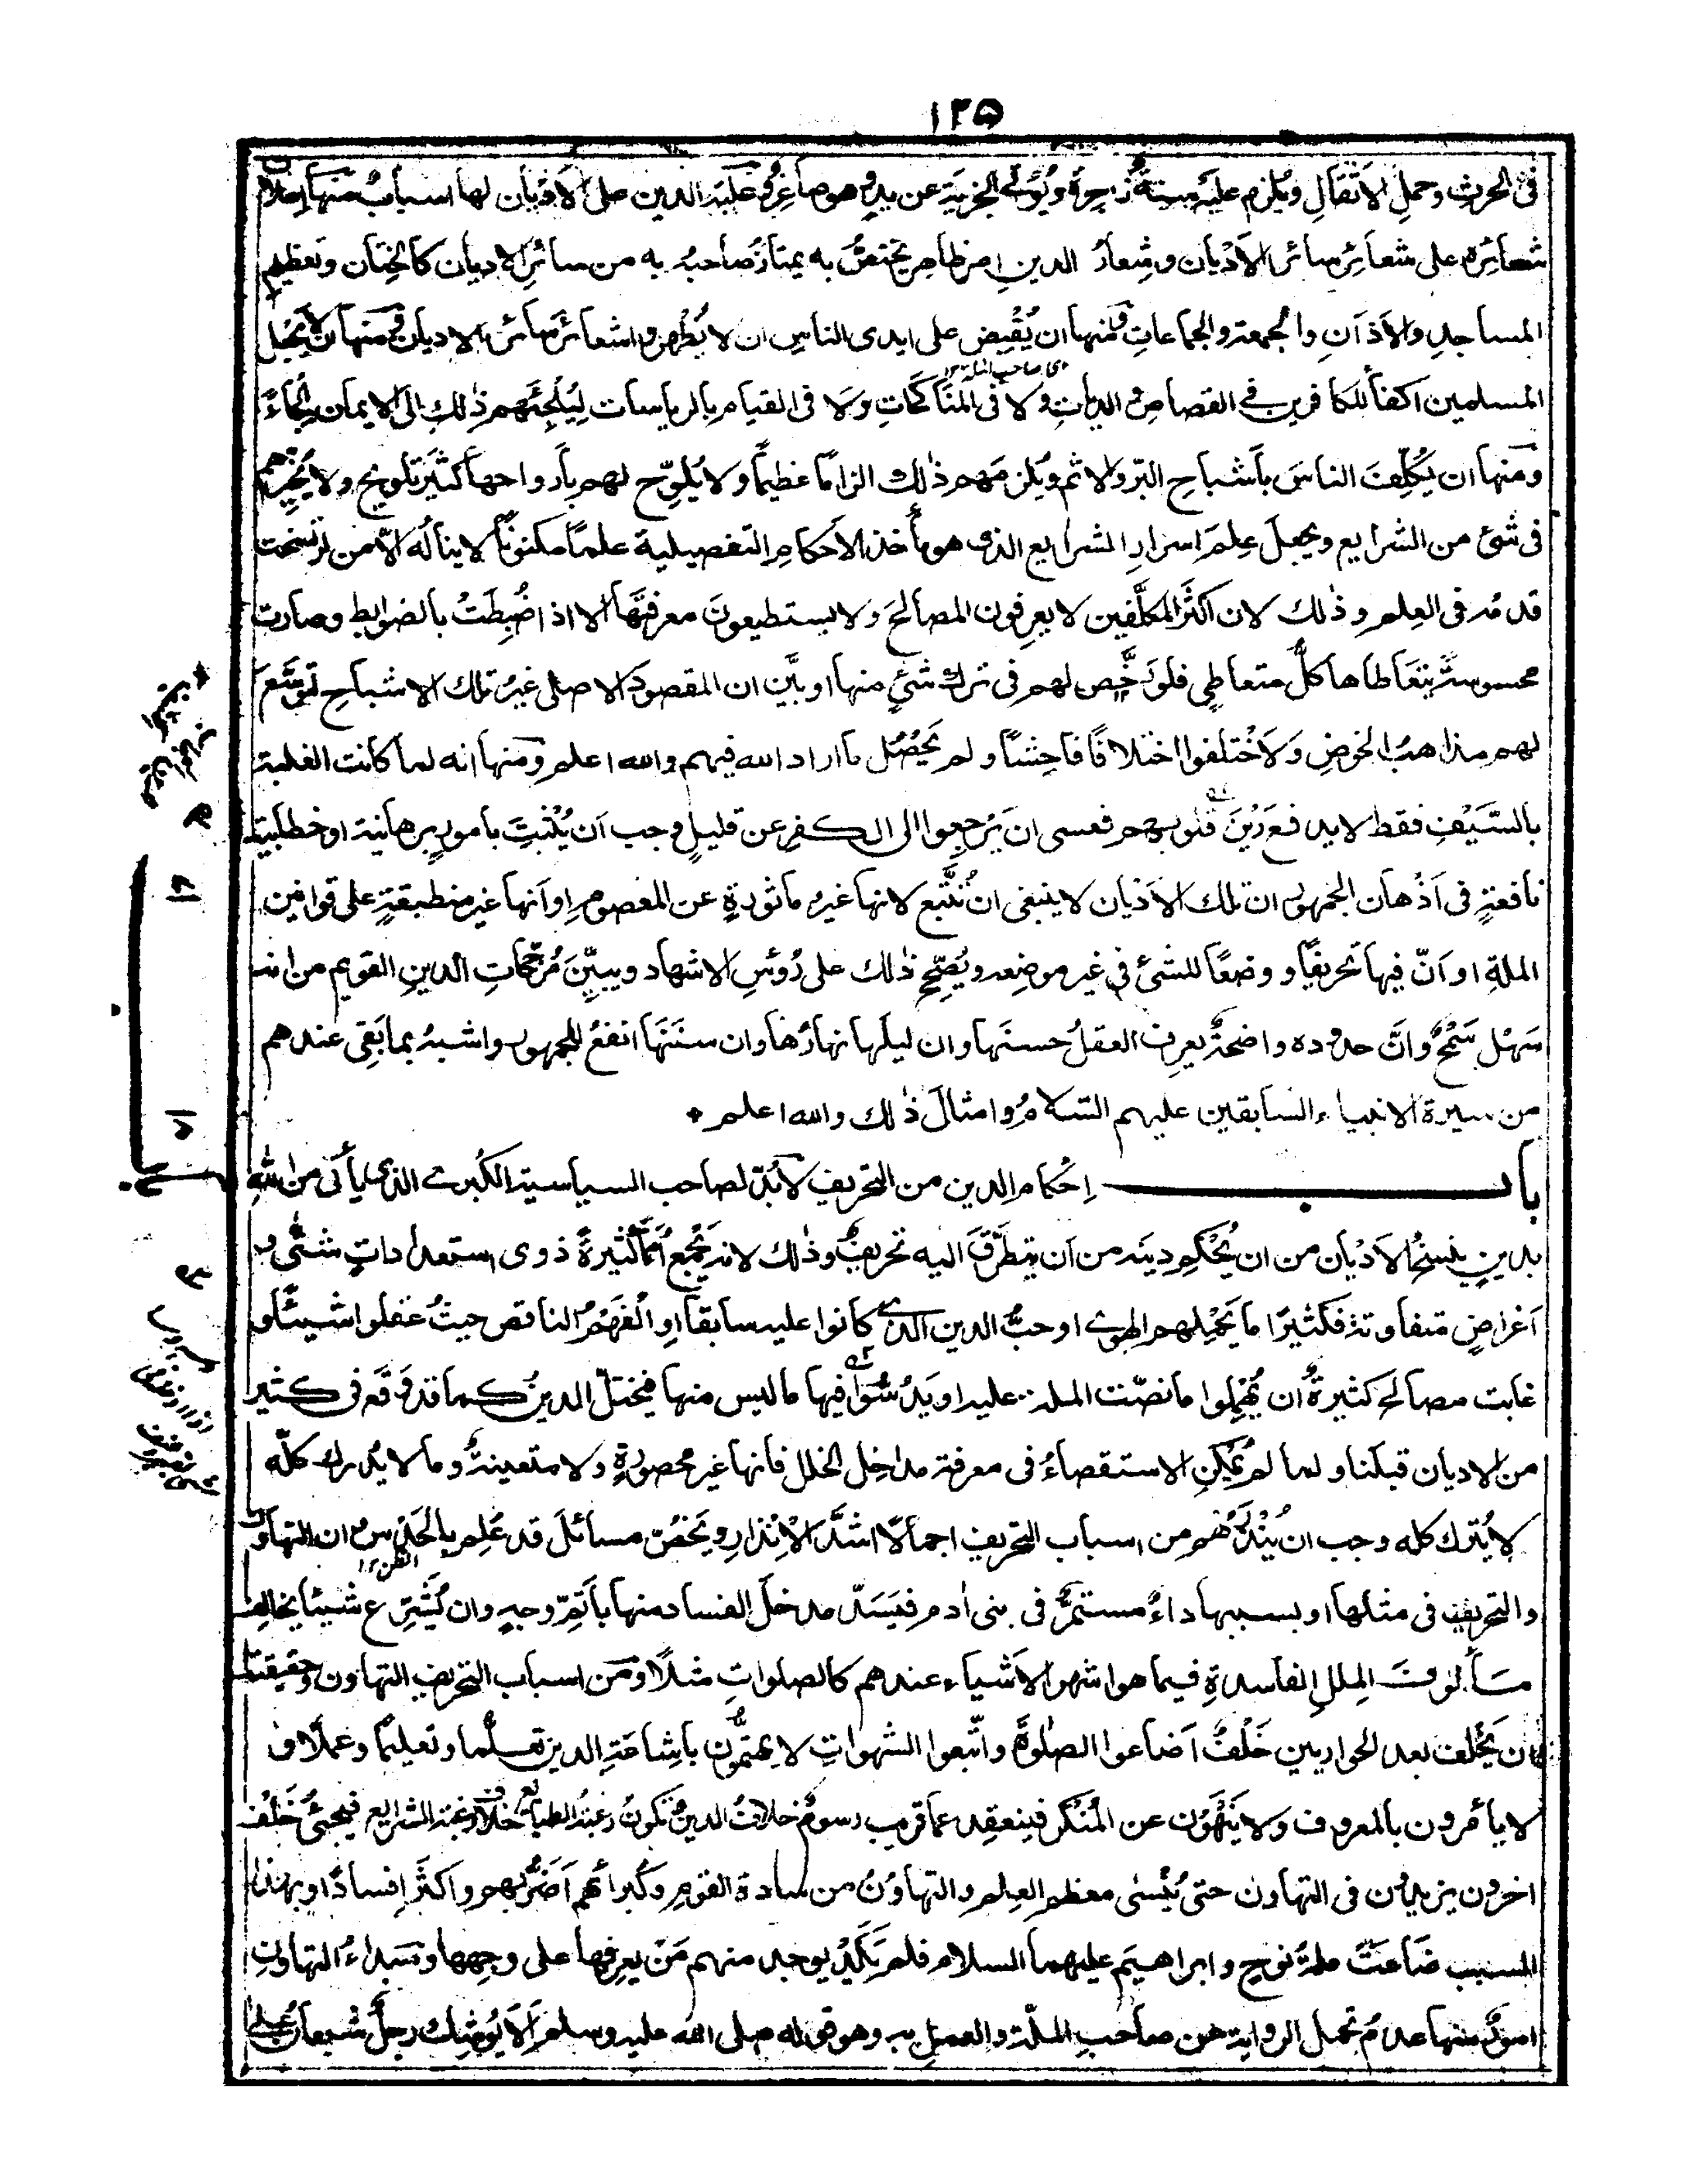 ١٢٥
فى الحرث وحملِ الاَثقالِ ويُلزم عليه سنةً زاجرةً ويُؤتى الجزيةَ عن يدٍ وهو صاغر وغلبة الدين على الاَديان لها اسبابٌ منها اعلان
شعائرِه على شعائرِ سائر الاَدْيان وشِعارُ الدين امر ظاهر يختصُّ به يمتازُ صاحبُه به من سائرِ الاديان كالخِتان وتعظيم
المساجدِ والاَذآنِ والجمعة والجماعاتِ ومنها ان يَقْبِض على ايدى الناس ان لا يُظْهِروا شعائرَ سائر الاديان ومنها ان لا يَجعل
المسلمين اكفأ للكافرين فى القصاص والدياتِ ولا فى المناكَحَاتِ ولا فى القيام بالرياسات لِيُلْجِئَهم ذٰلك الى الايمان اِلجاءً
ومنها ان يُكلِّفَ الناسَ بأشباحِ البرّ والاثم ويُلزمَهم ذٰلك الزامًا عظيمًا ولا يُلوِّح لهم بأرواحها كثيرَ تلويح ولا يُخيِّرَهم
فى شئ من الشرايع ويجعلَ عِلمَ اسرارِ الشرايع الذى هو مأخذ الاَحكام التفصيلية علمًا مكنونًا لا ينالُه الّا من ترسّخت
قدمُه فى العِلم وذٰلك لان اكثرَ المكلَّفين لا يعرِفون المصالحَ ولا يستطيعونَ معرفتَها الا اذا ضُبِطَتْ بالضوابط وصارت
محسوسةً يتعَاطاها كلُّ متعاطِي فلو رَخَّص لهم فى ترك شئٍ منها او بيَّن ان المقصودَ الاصلى غيرُ تلك الاشباحِ لتوسَّعَ
لهم مذاهبُ الخوضِ وَلاخْتلفوا اختلافًا فاحِشًا ولم يَحْصُل ما اراد الله فيهم والله اعلم ومنها انه لما كانت الغلبة
بالسَّيْفِ فقط لا يدفع رَيْنَ قلوبهم فعسى ان يَرْجِعوا الى الكفرِ عن قليلٍ وجب اَن يُثْبتَ بأمورٍ برهانية او خطابية
نافعةٍ فى اَذْهان الجمهور ان تلك الاَديان لا ينبغى ان تُتَّبع لانها غيرُ مأثورةٍ عن المعصوم او اَنها غيرمنطبقةٍ على قوانين
الملةِ او اَنّ فيها تحريفًا ووضعًا للشئ فى غير موضِعه ويُصحِّح ذٰلك على رُؤسِ الاشهاد ويبيِّنَ مُرجِّحاتِ الدينِ القويم من انه
سَهْل سَمْحٌ وانَّ حدوده واضحةٌ يعرِف العقلُ حسنَها وان ليلَها نهارُها وان سنَنَها انفعُ للجمهور واشبهُ بما بَقِى عندهم
من سيرة الانبياء السابقين عليهم السلامُ وامثالَ ذٰلك والله اعلم *
باب اِحْكام الدين من التحريف لابُدّ لصاحب السياسة الكُبرى الذى يأتى من الله
بدينٍ ينسخُ الاَدْيان من ان يُحْكِم دينَه من اَن يتطرَّقَ اليه تحريفٌ وذٰلك لانه يَجْمعُ اُممًا كثيرةً ذوى استعداداتٍ شتّى و
اَغراضٍ متفاوتة فكثيرًا ما يَحْمِلهم الهوى او حبُّ الدين الذى كانوا عليه سابقا او الْفَهْمُ الناقص حيثُ عَقَلوا شيئًا و
غابت مصالح كثيرةٌ ان يُهْمِلوا ما نصّت الملة عليه او يَدُسُّوا فيها ما ليس منها فيختلّ الدينُ كما قد وقَع فى كثير
من الاديان قبلَنا ولما لم يُمْكِنِ الاستقصاءُ فى معرفة مداخِل الخلل فانها غير محصورةٍ ولا متعينةٍ وما لا يُدرك كلّه
لا يُترك كله وجب ان يُنْذِرَهم من اسباب التحريف اجمالًا اشدَّ الاِنْذارِ ويَخصّ مسائلَ قد عَلِم بالحَدْس ان التهاون
والتحريف فى مثلها او بسببها داءٌ مستمرٌّ فى بنى اٰدم فيَسدّ مدخلَ الفساد منها بأتمّ وجهٍ وان يُشرِّع شيئًا يخالف
مَألوفَ المِللِ الفاسدةِ فيما هو اشهر الاَشياء عندهم كالصلواتِ مثلًا ومن اسباب التحريف التهاون وحقيقته
ان يَخْلف بعد الحواريين خَلْفٌ اَضاعوا الصلٰوةَ واتّبعوا الشهواتِ لا يهتمُّون بأشاعةِ الدين تعلّمًا وتعليمًا وعملًا و
لا يأمُرون بالمعروف وَلا يَنْهَوْن عن المُنْكَر فينعقِد عما قريب رسومٌ خلافُ الدين وتكونُ رغبةُ الطبائع خلاف رغبة الشرايع فيجئُ خَلْف
اٰخرون يزيدون فى التهاون حتى يُنْسٰى معظم العِلم والتهاوُنُ من سادة القوم وكُبرائهم اَضَرُّ بهم واكثرُ اِفسادًا وبهذا
السبب ضَاعَتْ ملةُ نوحٍ وابراهيمَ عليهما السلام فلم يَكَدْ يوجد منهم مَنْ يعرِفها على وجهها ومَبداءُ التهاونِ
امورٌ منها عدمُ تحمل الرواية عن صاحبِ الملّة والعملِ به وهو قوله صلى الله عليه وسلم اَلا يُوشِك رجلٌ شبعانُ على